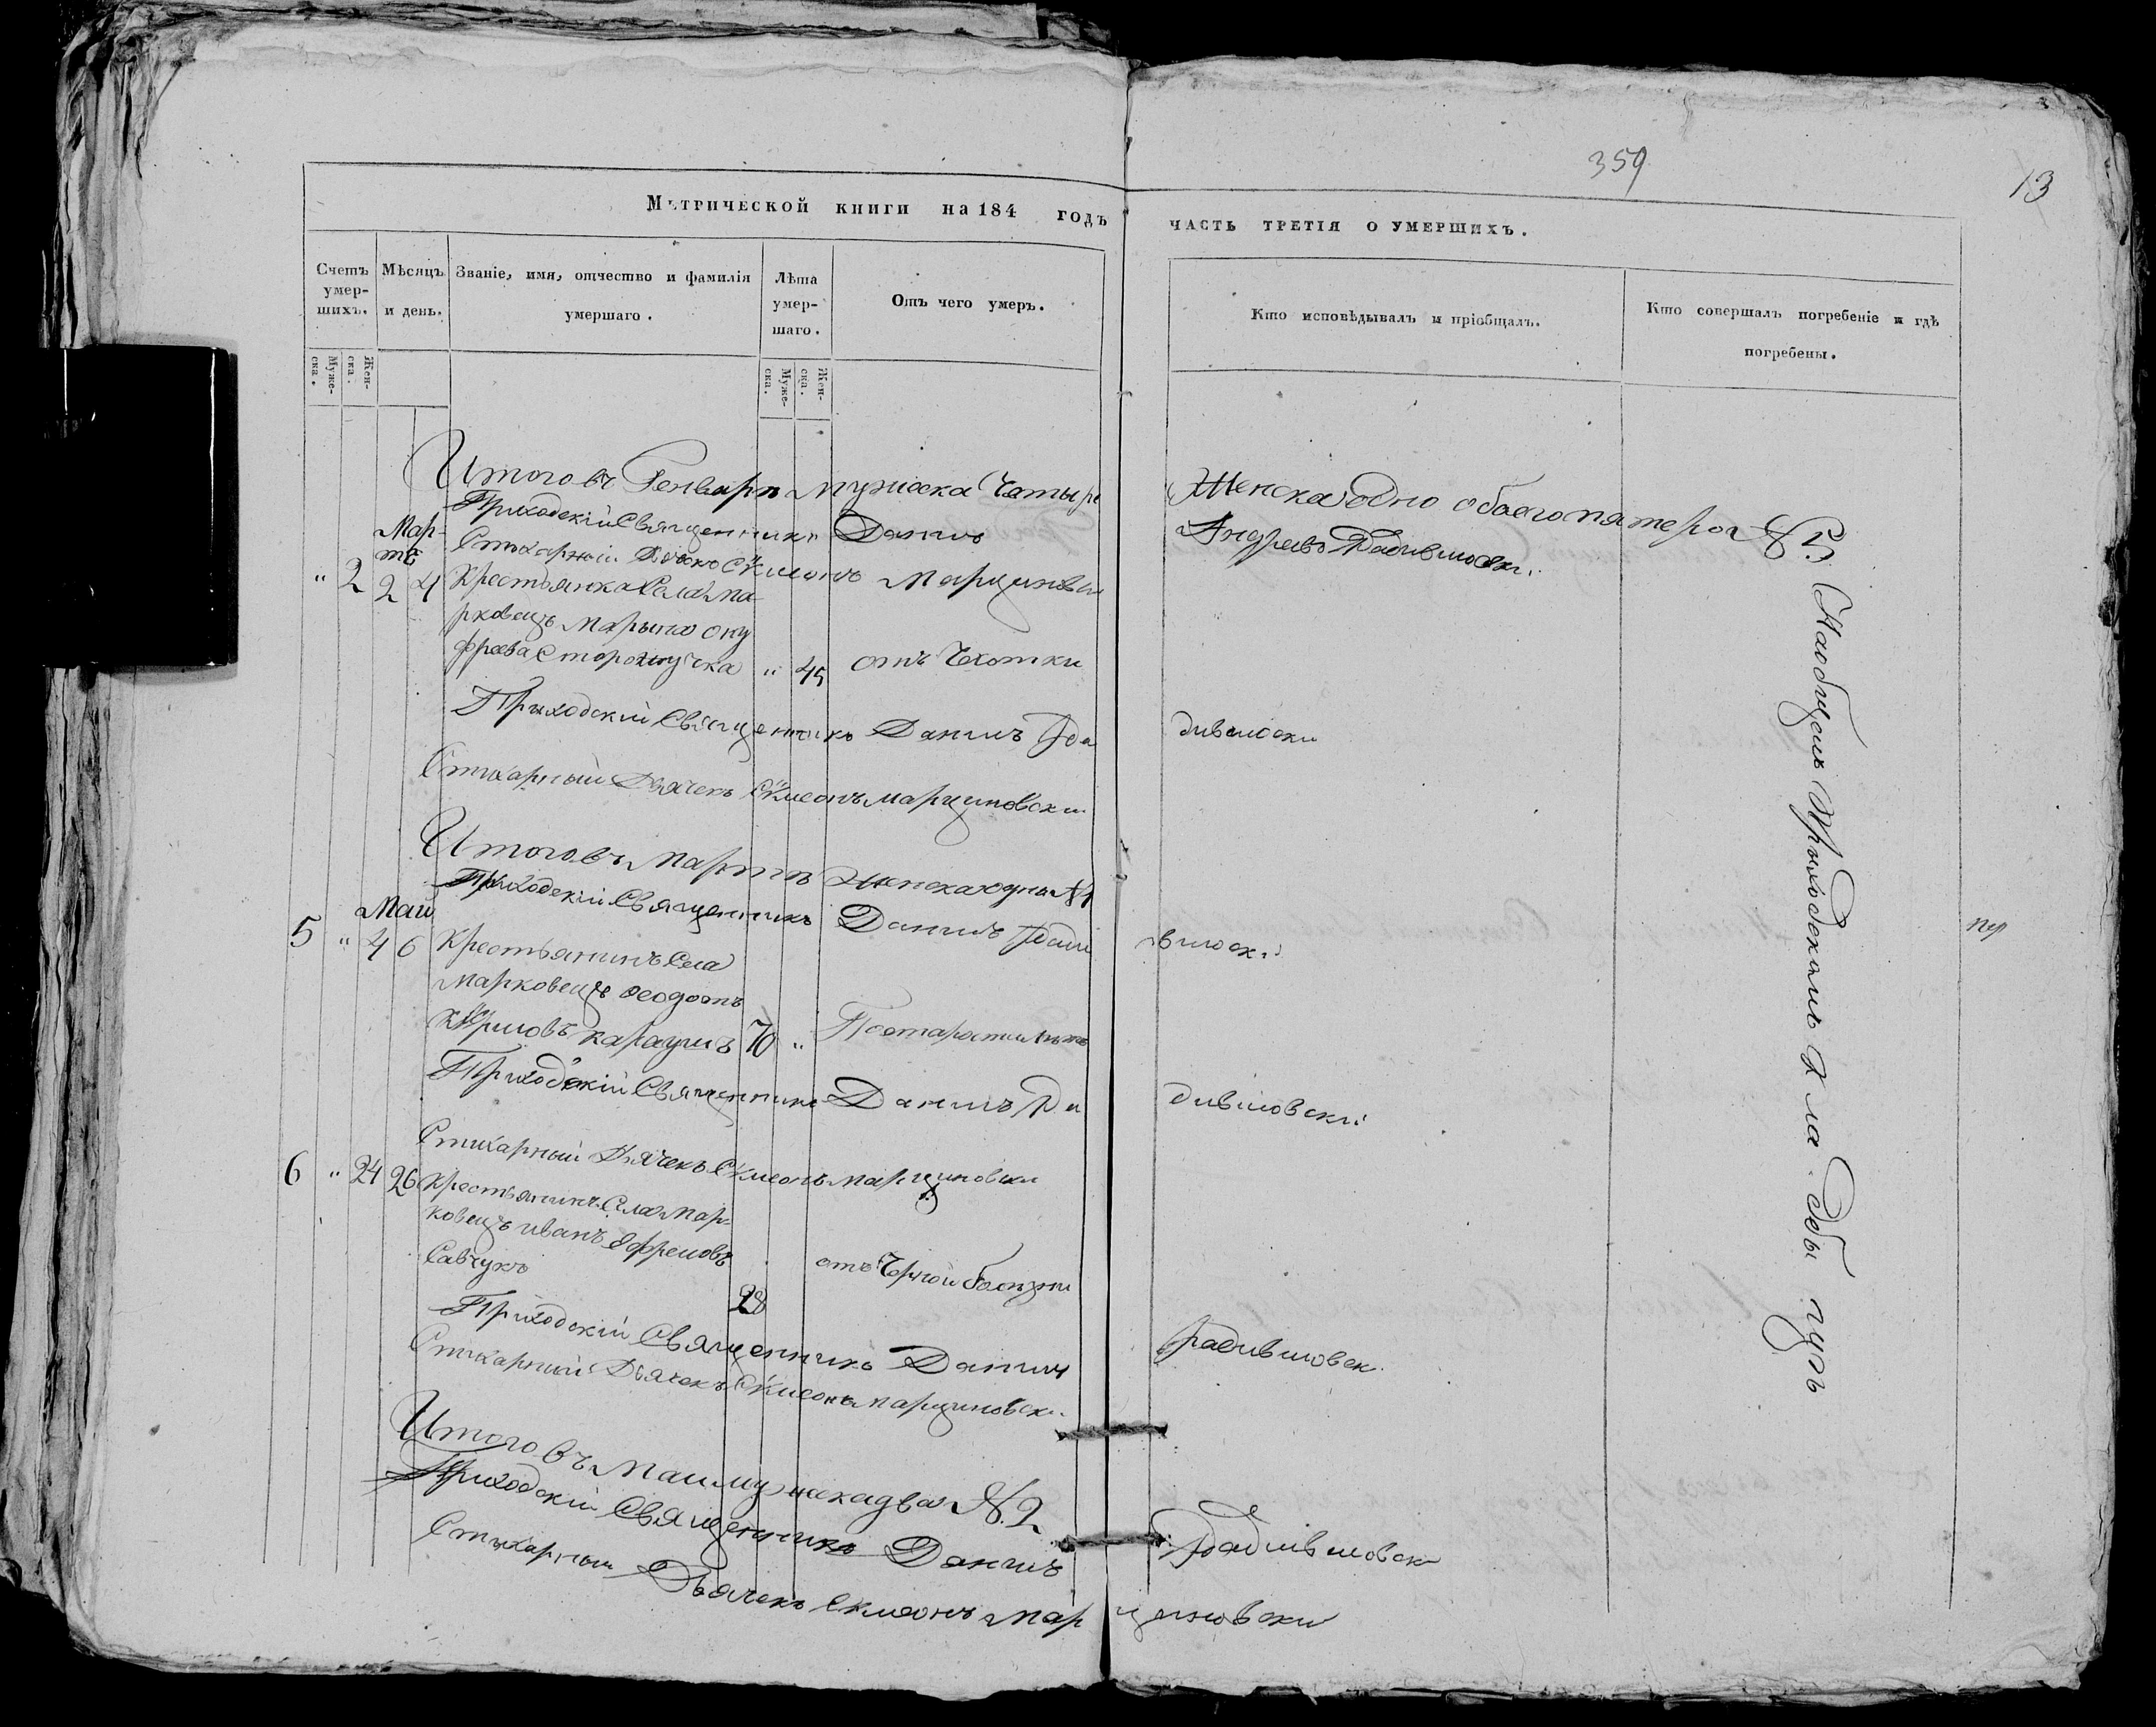 359
13
Метрической книги на 184 годъ
часть третія о умершихъ.
Счетъ умер-
шихъ.
Муже-
ска.
Жен-
ска.
Мѣсяцъ
и день.
Званіе, имя, отчество и фамилія
умершаго.
Лѣта
умер-
шаго.
Муже-
ска.
Жен-
ска.
Отъ чего умеръ.
Кто исповѣдывалъ и пріобщалъ.
Кто совершалъ погребеніе и гдѣ
погребены.
Итого въ Генварѣ Мужска Четыре Женска одно обоего пятеро № 5
Приходскій Священникъ Данилъ Андреевъ
Стихарный Дьячекъ Сѵмеонъ Марциновски
Мар-
тъ
" 2 2 4 Крестьянка Села Ма
рковецъ Марына Ону
фрева Сторожучка " 45 отъ Чхотки
Приходскій Священникъ Данилъ Ра дивиловски
Стихарный Дьячекъ Сѵмеонъ Марциновски
Итого въ Мартѣ Женска одна № 1
Приходскій Священникъ Данилъ Ради виловскі
Май
5 " 4 6 Крестьянинъ Села
Марковецъ Ѳеодотъ
Карауш 70 "
Приходскій Священникъ Данилъ Ра дивиловскій
Стихарный Дьячекъ Сѵмеонъ Марциновски
6 " 24 26 Крестьянинъ Села Мар-
ковецъ Иванъ Ефремовъ
Савчукъ 28 отъ Чорной болезни
Приходскій Священникъ Данилъ Радивиловск
Стихарный Дьячекъ Сѵмеонъ Марциновск
Итого въ Маи Мужска два № 2
Приходскій Священникъ Данилъ Радивиловск
Стихарный Дьячекъ Сѵмеонъ Мар циновски
На общемъ Приходскамъ Кла дбы